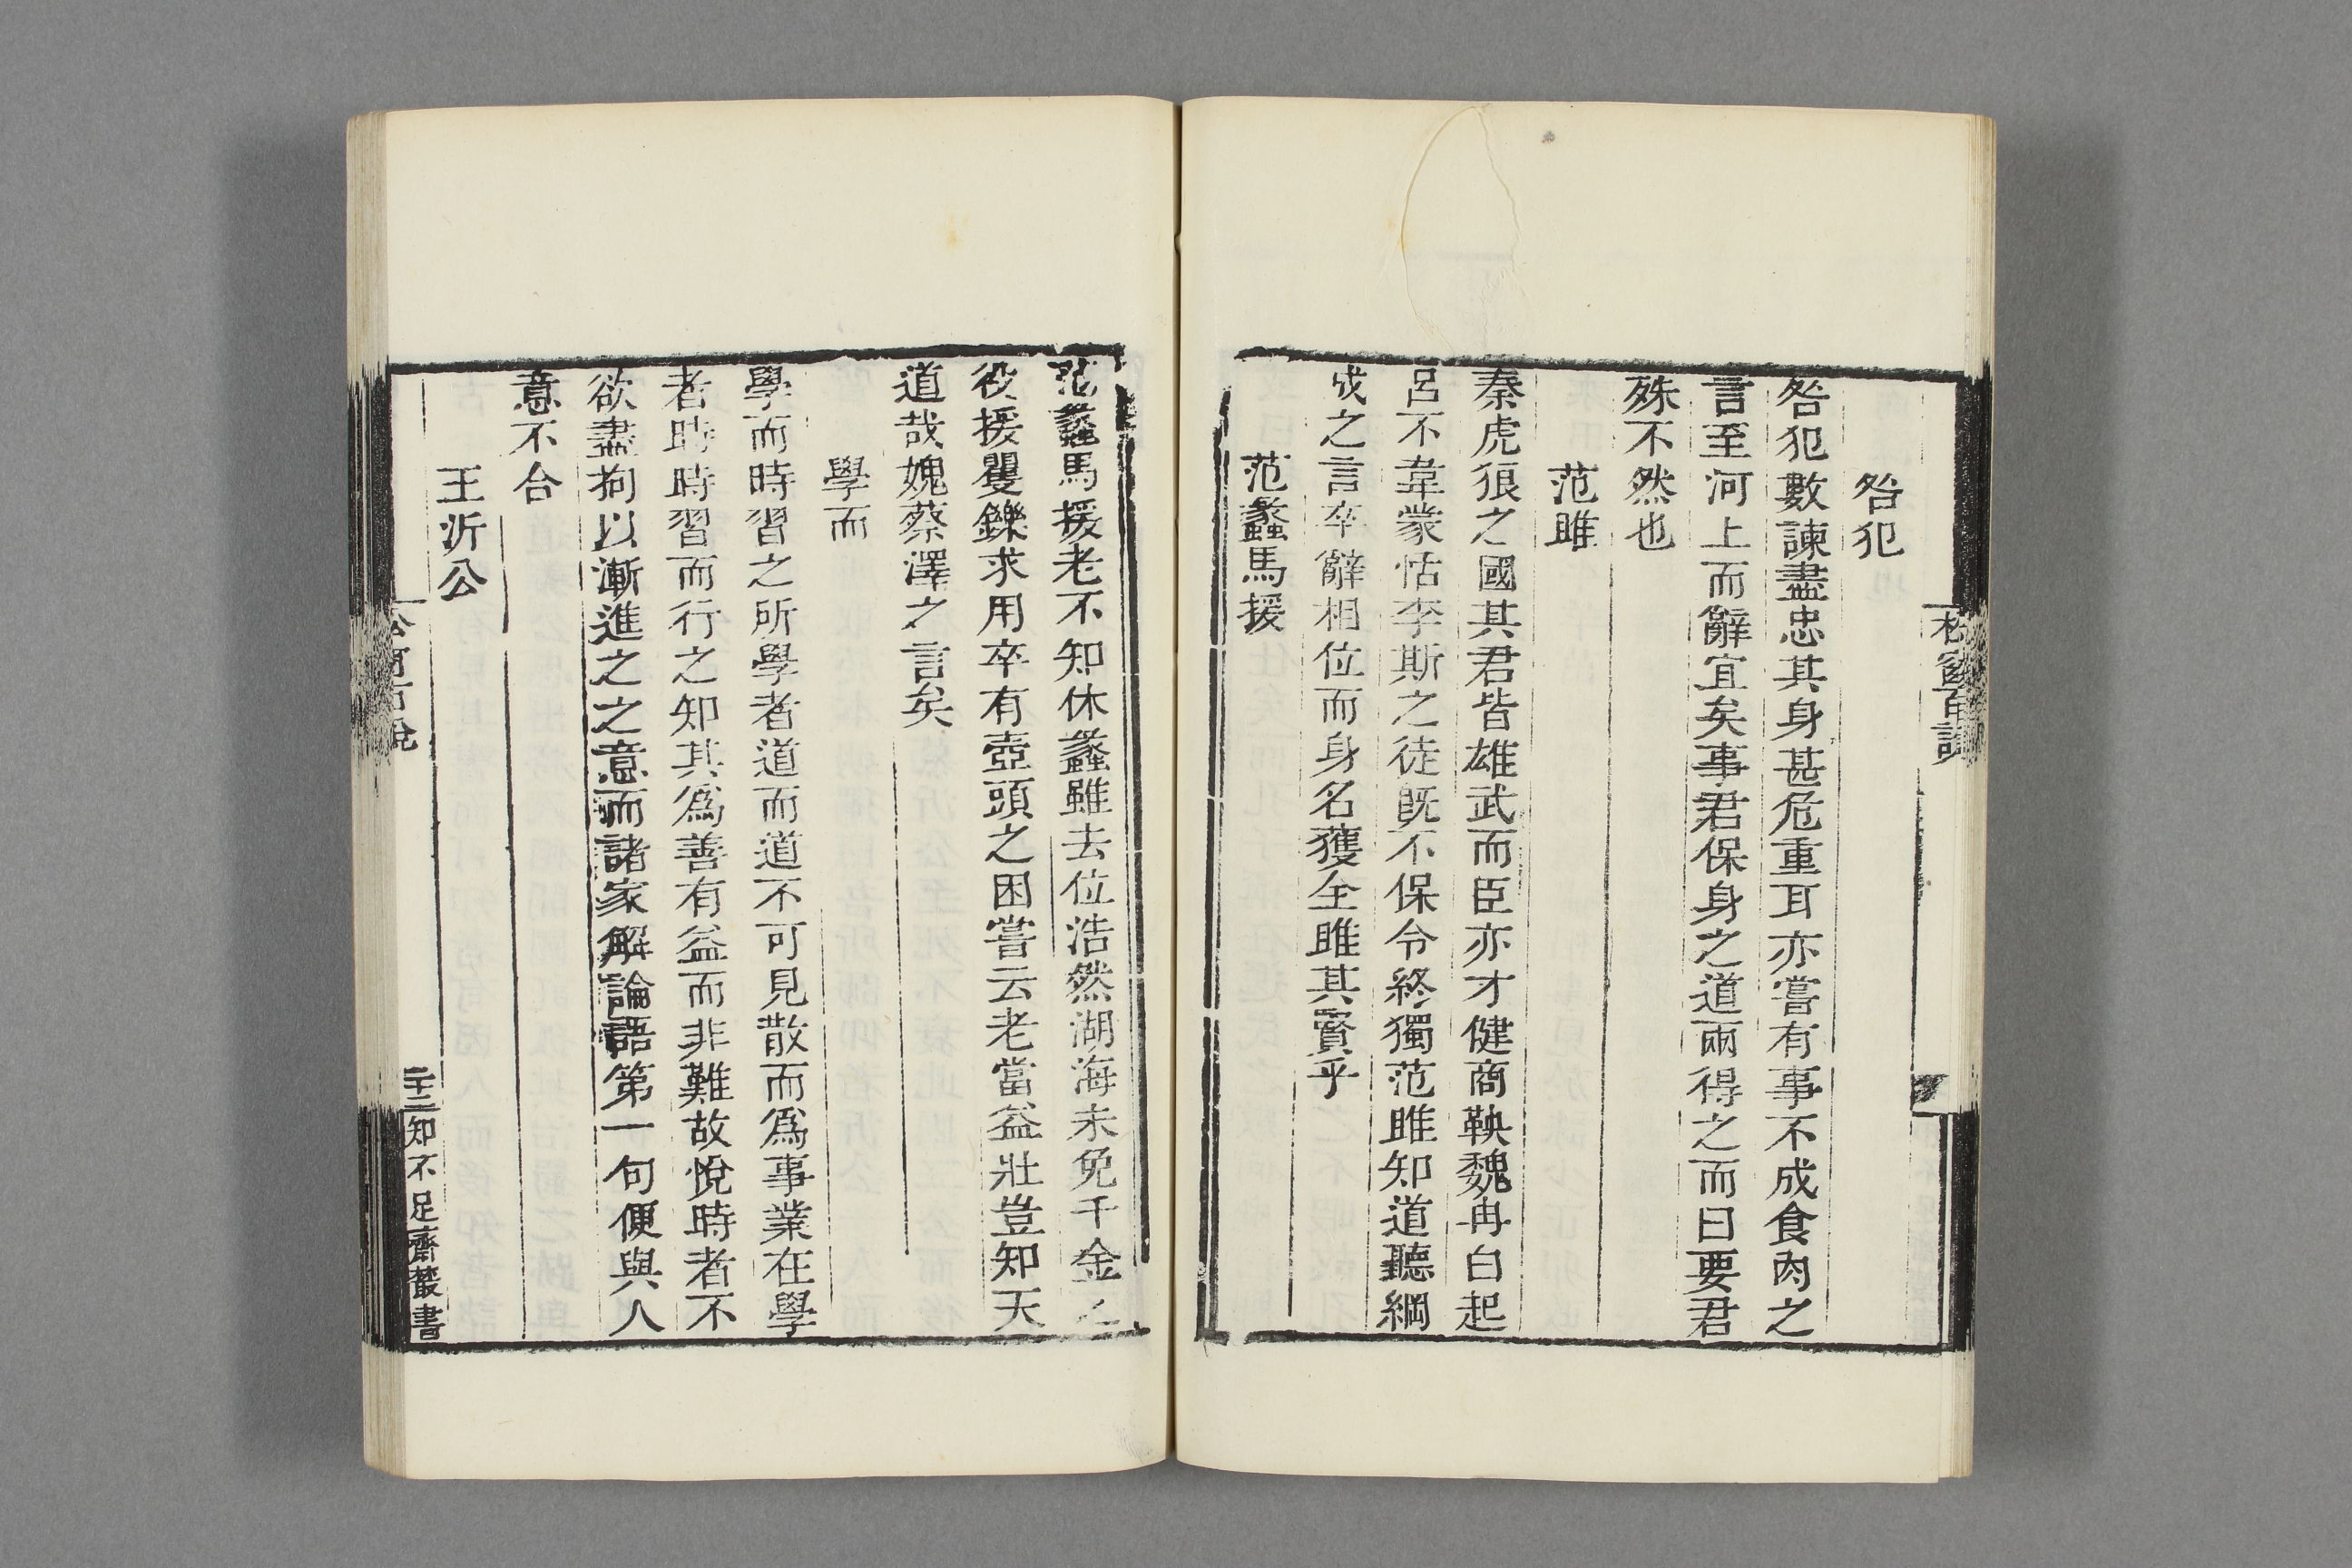 咎犯
咎犯數諫盡忠其身甚危重耳亦嘗有事不成食肉之
言至河上而辭宜矣事君保身之道兩得之而曰要君
殊不然也
范雎
秦虎狼之國其君皆雄武而臣亦才健商鞅魏冉白起
呂不韋蒙恬李斯之徒旣不保令終獨范雎知道聽綱
成之言卒辭相位而身名獲全雎其賢乎
范蠡馬援
范蠡馬援老不知休蠡雖去位浩然湖海未免千金之
役援矍鑠求用卒有壺頭之困嘗云老當益壯豈知天
道哉媿蔡澤之言矣
學而
學而時習之所學者道而道不可見散而爲事業在學
者時時習而行之知其爲善有益而非難故悅時者不
欲盡拘以漸進之之意而諸家解論語第一句便與人
意不合
王沂公
知不足齋叢書